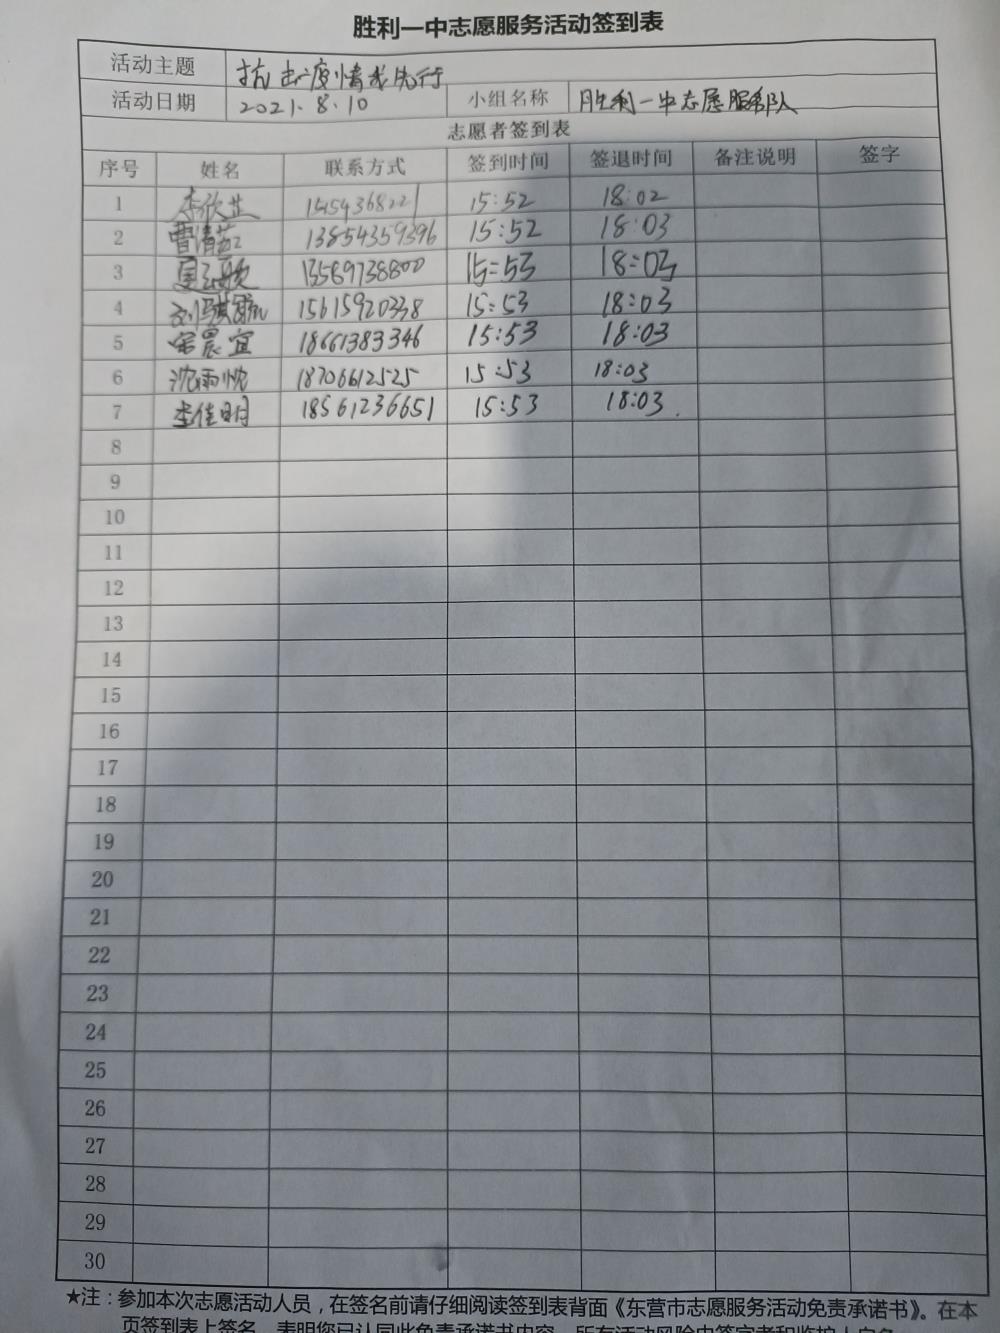 胜利一中志愿服务活动签到表
活动主题 抗击疫情我先行
活动日期 2021.8.10 小组名称 胜利一中志愿服务队
志愿者签到表
序号 姓名 联系方式 签到时间 签退时间 备注说明 签字
1 李欣芷 15:52 18:02
2 曹清茹 13854359396 15:52 18:03
3 13589738800 15:53 18:03
4 15615920338 15:53 18:03
5 宋晨宜 18661383346 15:53 18:03
6 沈雨忱 18706612525 15:53 18:03
7 李佳明 18561236651 15:53 18:03
8
9
10
11
12
13
14
15
16
17
18
19
20
21
22
23
24
25
26
27
28
29
30
★注：参加本次志愿活动人员，在签名前请仔细阅读签到表背面《东营市志愿服务活动免责承诺书》。在本
页签到表上签名，表明您已认同此免责承诺书内容，所有活动风险由签字者和监护人自负。